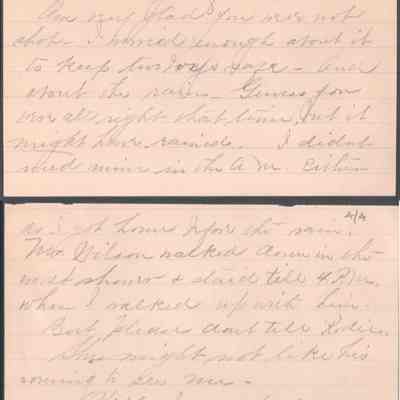 Am very glad you were not
shot. I worried enough about it
to keep two safe - And
about the rain - Guess you
were all right that time, but it
might have rained. I didn't
need mine in the A.M. Either
4/4
as I got home before the rain.
Mr. Wilson walked down in the
next shower & staid till 4 P.M.
when I walked up with him.
But please dont tell
She might not like his
coming to see me -